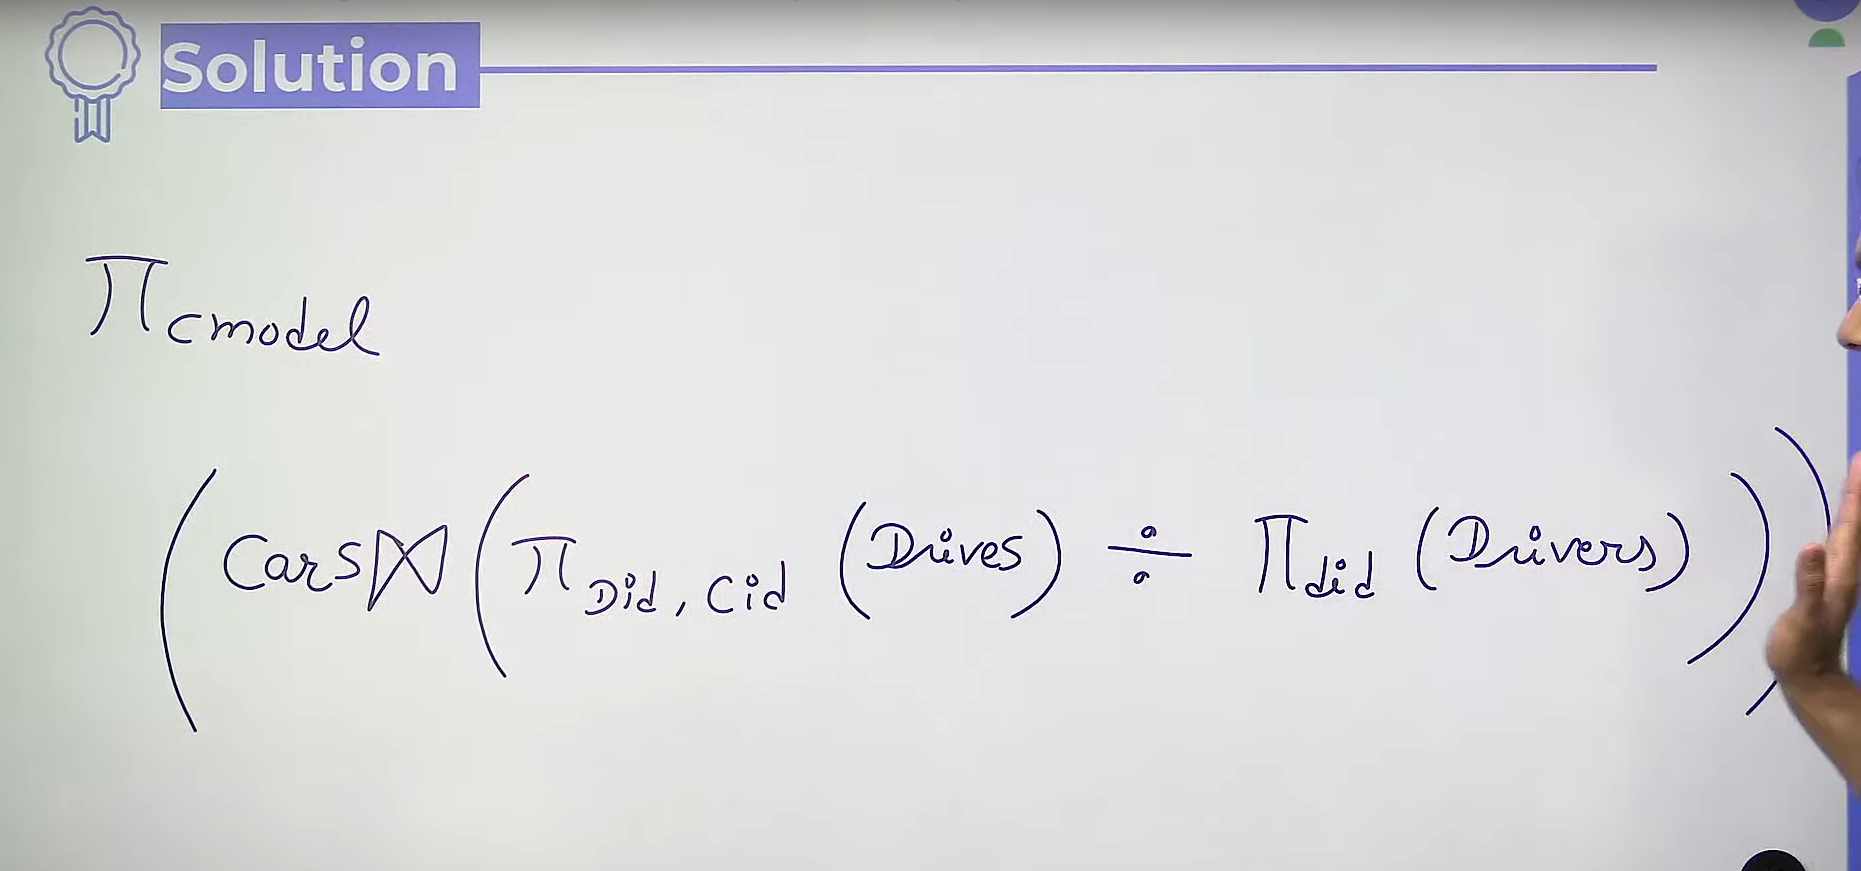 Solution
π cmodel
(Cars ⋈ (π Did, Cid (Drives) ÷ π did (Drivers)))